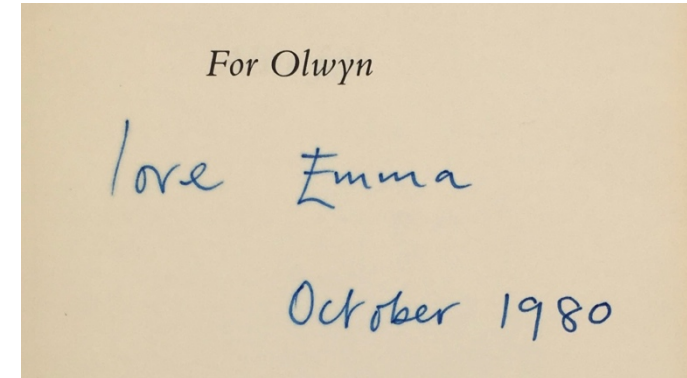 For Olwyn
love Emma
October 1980